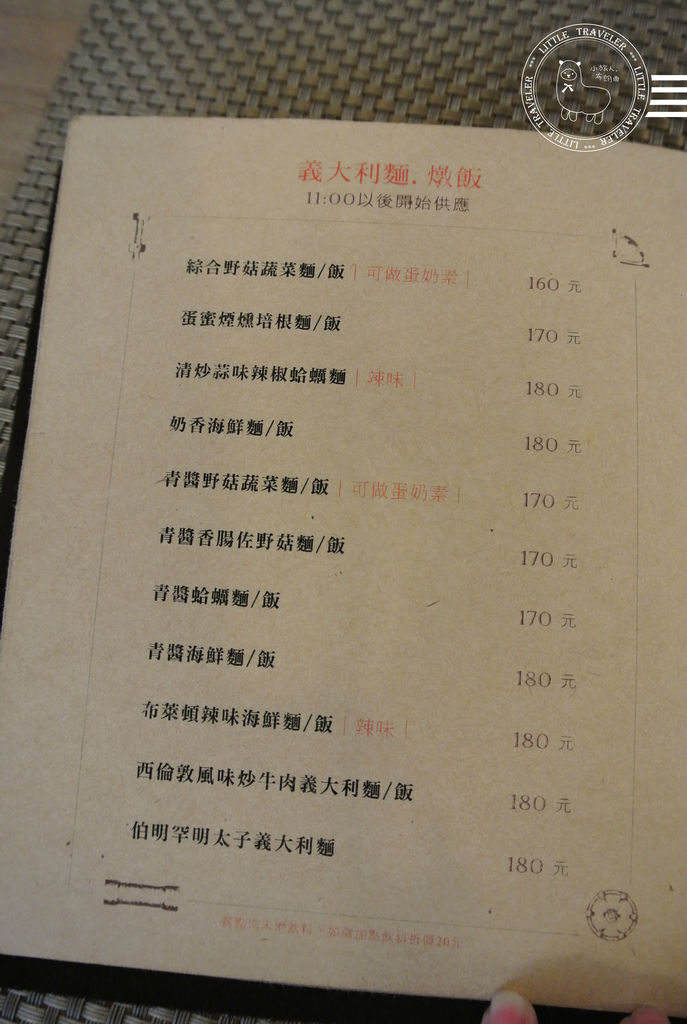 LITTLE TRAVELER *** LITTLE TRAVELER *** LITTLE TRAVELER ***
小旅人
義大利麵. 燉飯
11:00以後開始供應
綜合野菇蔬菜麵/飯 | 可做蛋奶素 | 160 元
蛋蜜煙燻培根麵/飯 170 元
清炒蒜味辣椒蛤蠣麵 | 辣味 | 180 元
奶香海鮮麵/飯 180 元
青醬野菇蔬菜麵/飯 | 可做蛋奶素 | 170 元
青醬香腸佐野菇麵/飯 170 元
青醬蛤蠣麵/飯 170 元
青醬海鮮麵/飯 180 元
布萊頓辣味海鮮麵/飯 | 辣味 | 180 元
西倫敦風味炒牛肉義大利麵/飯 180 元
伯明罕明太子義大利麵 180 元
餐點均未附飲料、如需加點飲料折價20元